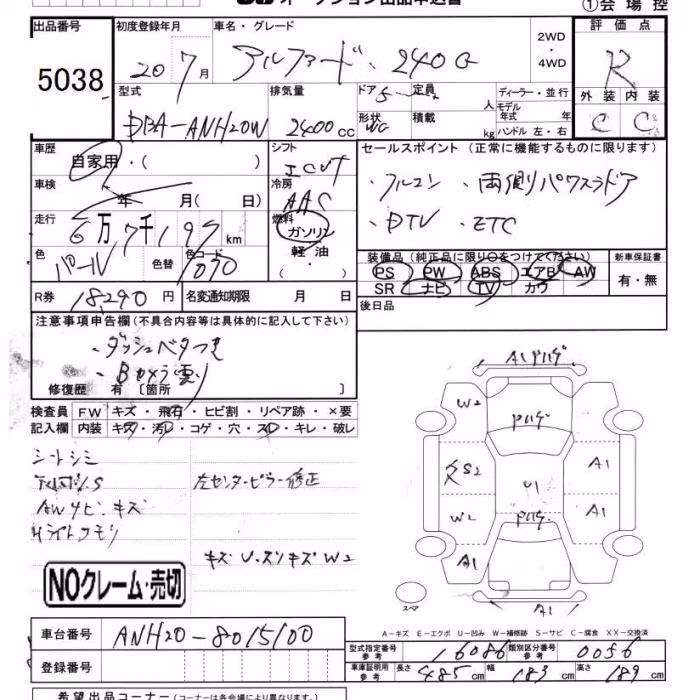 ①会場控
出品番号 初度登録年月 車名・グレード 2WD ・4WD 評価点
5038 20 7月 アルファード・240G R
型式 排気量 ドア 5 定員 人 ディーラー・並行 外装 内装
DBA-ANH20W 2400cc 形状 WG 積載 kg モデル年式 年 ハンドル 左・右 C C
車歴 自家用・( ) シフト ICVT セールスポイント (正常に機能するものに限ります)
車検 年 月( 日) 冷房 AAC ・フルエアコン ・両側パワスラドア
走行 6万7千197km 燃料 ガソリン 軽油 ・( ) ・DTV ・ETC
色 パール 色替 色コード 1070 装備品 (純正品に限り○をつけてください) 新車保証書
PS PW ABS エアB AW 有・無
SR ナビ TV カワ
R券 18290円 名変通知期限 月 日 後日品
注意事項申告欄 (不具合内容等は具体的に記入して下さい)
・ダッシュベタつき
・Bカメラ曇り
修復歴 有 〔箇所 〕
検査員 FW キズ・飛石・ヒビ割・リペア跡・×要
記入欄 内装 キズ・汚レ・コゲ・穴・スレ・キレ・破レ
シートシミ
左センターピラー修正
AWサビ・キズ
Hライトクモリ
キズU・スリキズW2
NOクレーム・売切
A1
W2
S2
U1
A1
W2
A1
A1
A1
スペア
A-キズ E-エクボ U-凹み W-補修跡 S-サビ C-腐食 XX-交換済
車台番号 ANH20-8015100
型式指定番号 参考 16086 類別区分番号 参考 0056
登録番号 車庫証明用 参考 長さ 485cm 幅 183cm 高さ 189cm
希望出品コーナー (コーナーは各会場により異なります。)